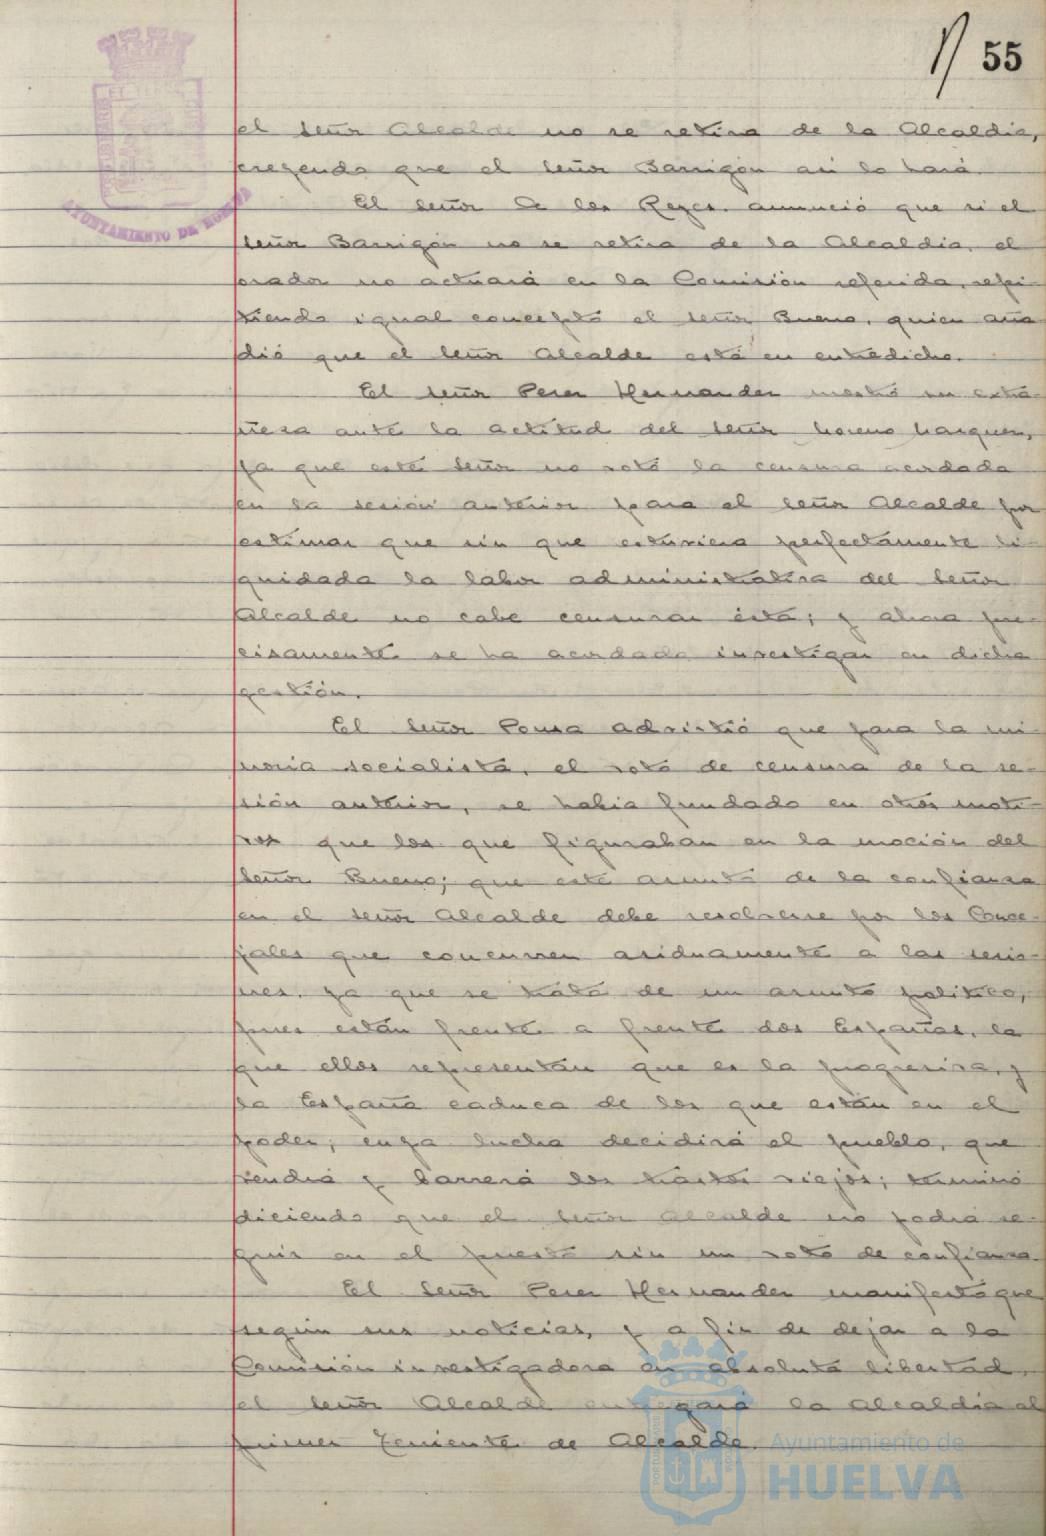 55
el señor Alcalde no se retira de la Alcaldía,
creyendo que el señor Barrigón así lo hará.
El señor de los Reyes, anunció que si el
señor Barrigón no se retira de la Alcaldía, el
orador no actuará en la Comisión referida, repi-
tiendo igual concepto el señor Bueno, quien aña
dió que el señor Alcalde está en entredicho.
El señor Perez Hernandez mostró su extra-
ñeza ante la actitud del señor Moreno Marquez,
ya que este señor no votó la censura acordada
en la sesión anterior para el señor Alcalde por
estimar que sin que estuviera perfectamente li-
quidada la labor administrativa del señor
Alcalde no cabe censurar ésta; y ahora pre-
cisamente se ha acordado investigar en dicha
gestión.
El señor Ponsa advirtió que para la mi-
noría socialista, el voto de censura de la se-
sión anterior, se había fundado en otros moti-
vos que los que figuraban en la moción del
señor Bueno; que este asunto de la confianza
en el señor Alcalde debe resolverse por los Conce-
jales que concurren asiduamente a las sesio-
nes, ya que se trata de un asunto político,
pues están frente a frente dos Españas, la
que ellos representan que es la progresiva, y
la España caduca de los que están en el
poder; cuya lucha decidirá el pueblo, que
vendrá y barrerá los trastos viejos; terminó
diciendo que el señor Alcalde no podrá se-
guir en el puesto sin un voto de confianza.
El señor Perez Hernandez manifestó que
según sus noticias, y a fin de dejar a la
Comisión investigadora en absoluta libertad,
el señor Alcalde entregará la Alcaldía al
primer Teniente de Alcalde.
AYUNTAMIENTO DE HUELVA
Ayuntamiento de
HUELVA